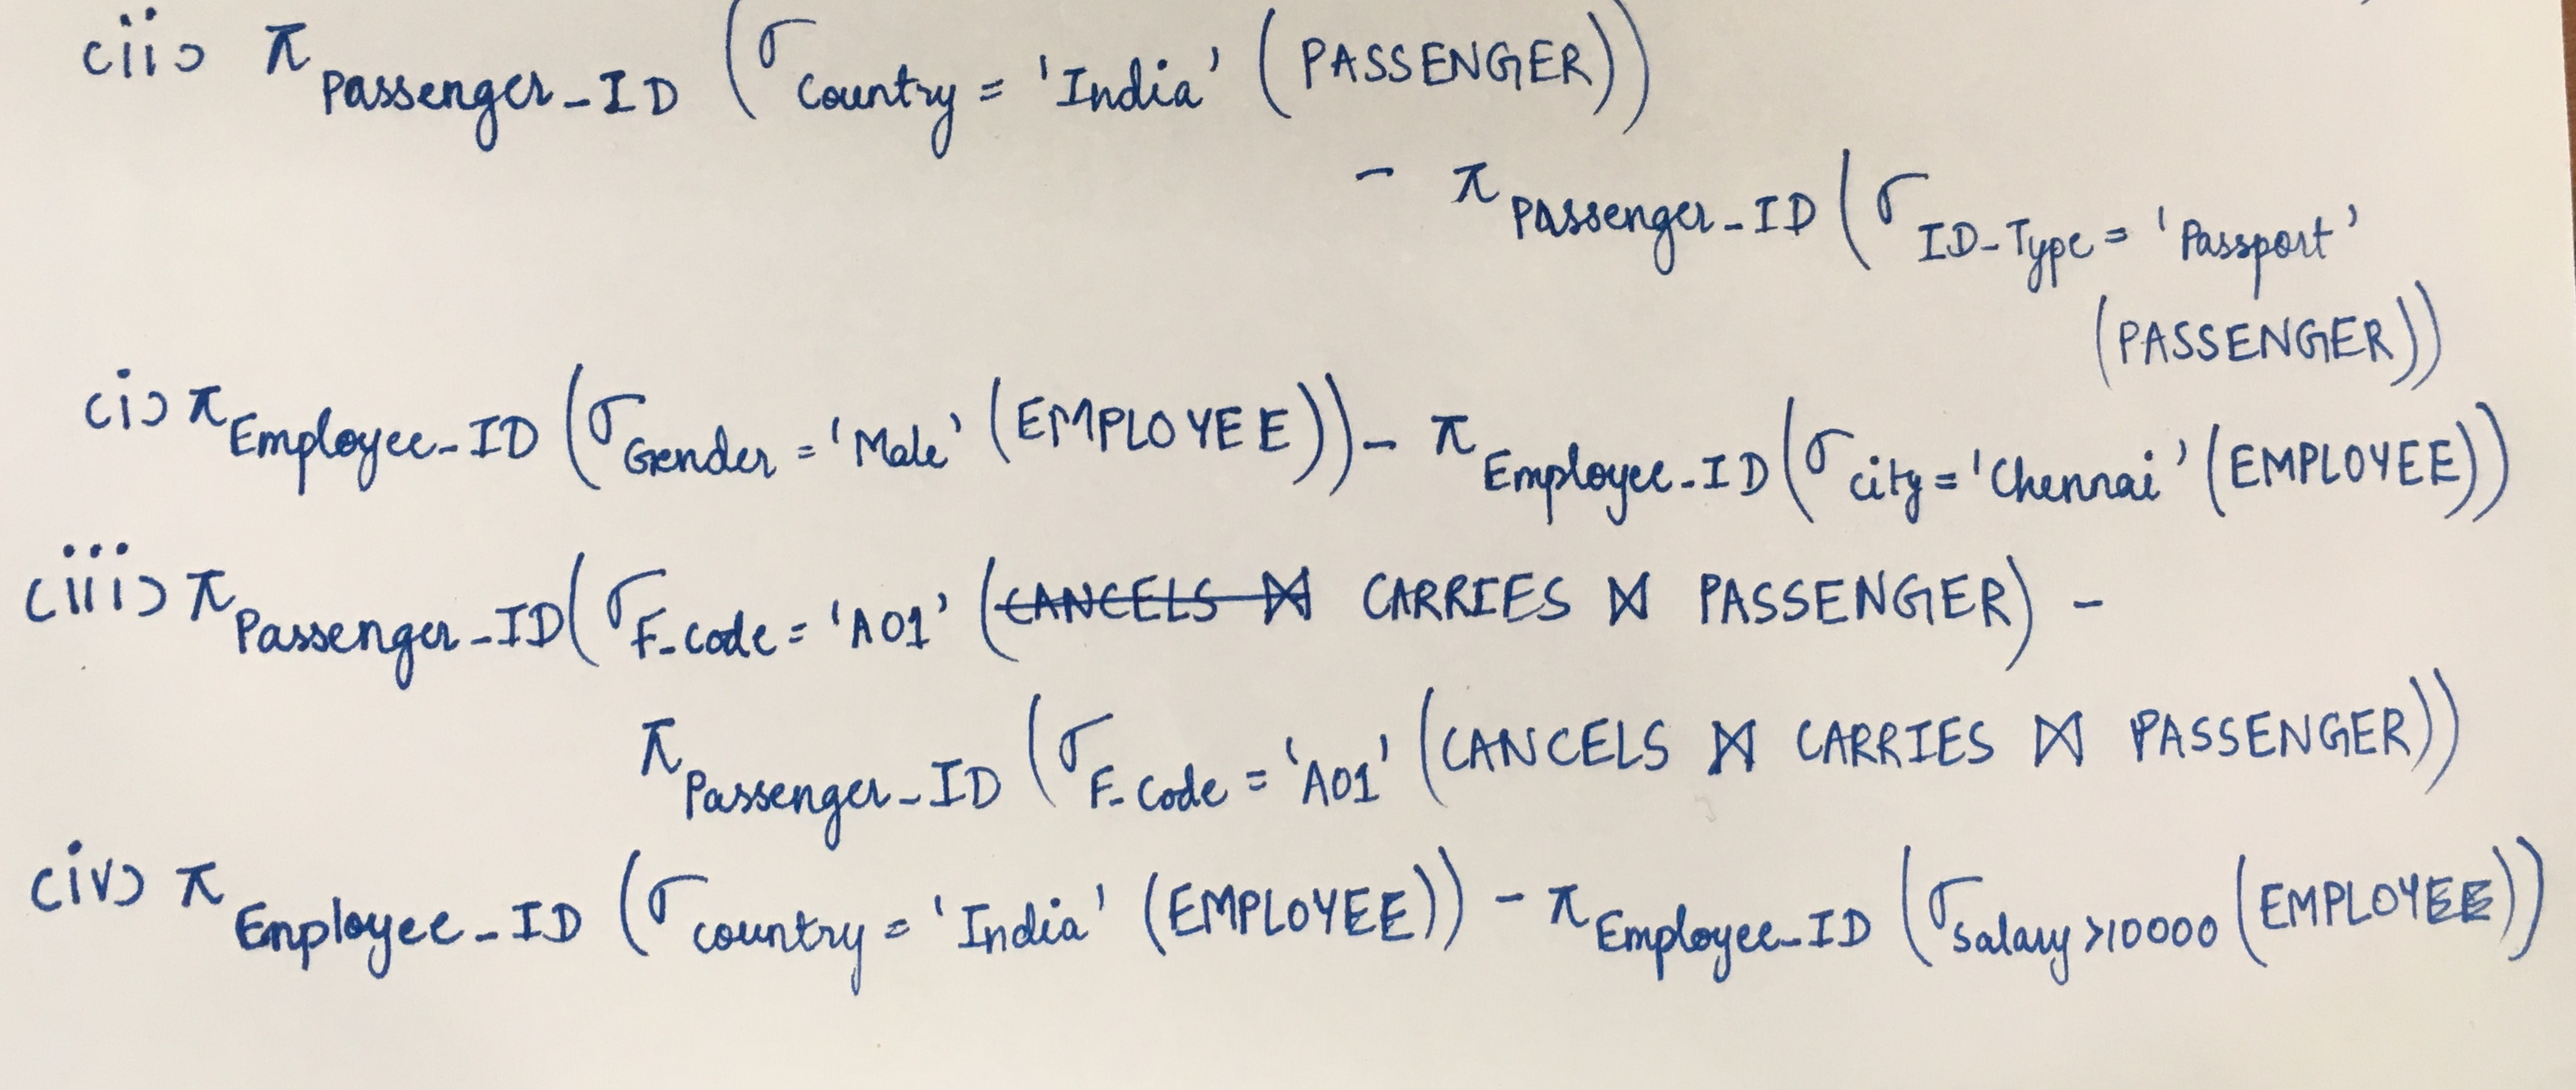 (ii) π Passenger_ID (σ Country = 'India' (PASSENGER))
- π Passenger_ID (σ ID_Type = 'Passport'
(PASSENGER))
(i) π Employee_ID (σ Gender = 'Male' (EMPLOYEE)) - π Employee_ID (σ city = 'Chennai' (EMPLOYEE))
(iii) π Passenger_ID (σ F_Code = 'A01' (CANCELS ⋈ CARRIES ⋈ PASSENGER) -
π Passenger_ID (σ F_Code = 'A01' (CANCELS ⋈ CARRIES ⋈ PASSENGER))
(iv) π Employee_ID (σ country = 'India' (EMPLOYEE)) - π Employee_ID (σ Salary >10000 (EMPLOYEE))